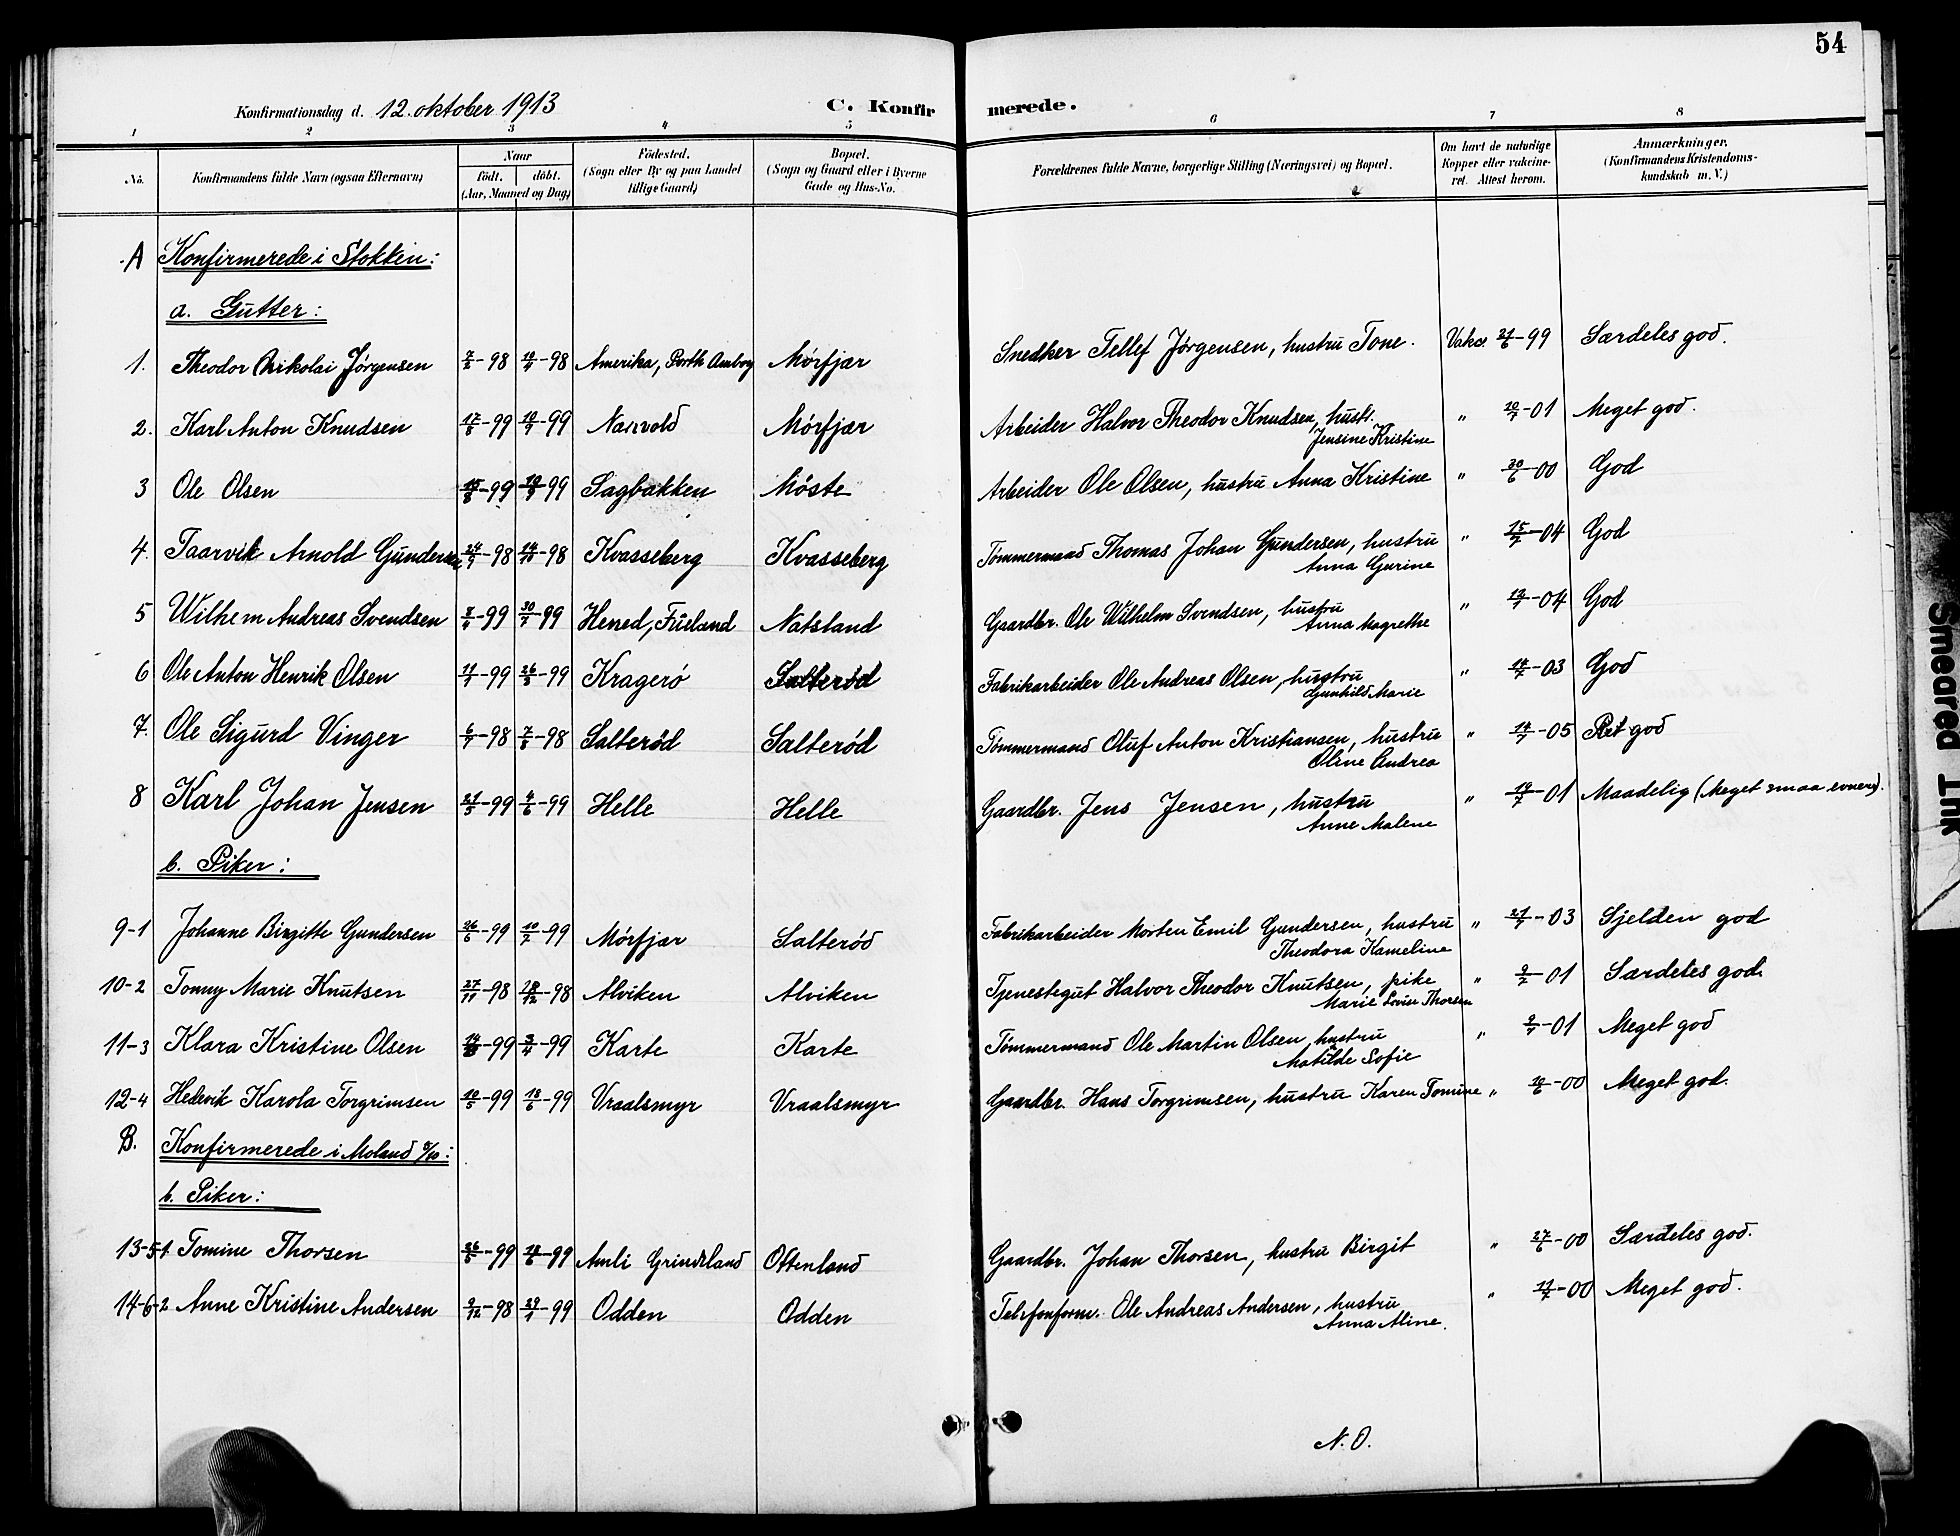 54
Konfirmationsdag d. 12. oktober 1913 C. Konfirmerede.
1 2 3 4 5 6 7 8
No. Konfirmandens fulde Navn (ogsaa Efternavn) Naar Födt. döbt. (Aar, Maaned og Dag) Födested. (Sogn eller By og paa Landet tillige Gaard) Bopæl. (Sogn og Gaard eller i Byerne Gade og Hus-No. Forældrenes fulde Navne, borgerlige Stilling (Næringsvei) og Bopæl. Om havt de naturlige Kopper eller vakcineret. Attest herom. Anmærkninger. (Konfirmandens Kristendomskundskab m. V.)
A Konfirmerede i Stokken:
a. Gutter:
1. Theodor Nikolai Jørgensen 7/2-98 10/4-98 Amerika, Perth Amboy Mórfjær Snedker Tellef Jørgensen, hustru Tone. Vakc. 21/6-99 Særdeles god.
2. Karl Anton Knudsen -99 -99 Narvold Mórfjær Arbeider Halvor Theodor Knudsen, hustr. Jensine Kristine " -01 Meget god.
3 Ole Olsen -99 -99 Sagbakken Móste Arbeider Ole Olsen, hustru Anna Kristine " 20/6-00 God
4. Taarvik Arnold Gundersen -98 -98 Kvasseberg Kvasseberg Tómmermand Thomas Johan Gundersen, hustru Anna Gurine " 15/7-04 God
5 Wilhem Andreas Svendsen -99 30/7-99 Hened, Frieland Natsland Gaardbr. Ole Wilhelm Svendsen, hustru Anna Magrethe " -04 God
6 Ole Anton Henrik Olsen -99 26/3-99 Krageró Salteród Fabrikarbeider Ole Andreas Olsen, hustru Gunhild Marie " -03 God
7. Ole Sigurd Vinger 6/7-98 7/8-98 Salteród Salteród Tómmermand Oluf Anton Kristiansen, hustru Oline Andrea " -05 Ret god
8 Karl Johan Jensen 21/5-99 4/6-99 Helle Helle Gaardbr. Jens Jensen, hustru Anne Malene " -01 Maadelig (Meget smaa evner).
b. Piker:
9-1 Johanne Birgitte Gundersen 26/6-99 10/7-99 Mórfjær Salteród Fabrikarbeider Morten Emil Gundersen, hustru Theodora Kameline " 21/7-03 Sjelden god
10-2 Tonny Marie Knutsen 27/11-98 28/12-98 Alviken Alviken Tjenestegut Halvor Theodor Knutsen, pike Marie Lovise Thorsen " 9/7-01 Særdeles god.
11-3 Klara Kristine Olsen -99 3/4-99 Karte Karte Tómmermand Ole Martin Olsen, hustru Matilde Sofie " 9/7-01 Meget god
12-4 Hedevik Karola Torgrimsen 10/5-99 18/6-99 Vraalsmyr Vraalsmyr Gaardbr. Hans Torgrimsen, hustru Karen Tomine " -00 Meget god.
B. Konfirmerede i Moland 5/10:
b. Piker:
13-5-1. Tomine Thorsen 26/5-99 18/6-99 Amli Grindsland Ottenland Gaardbr. Johan Thorsen, hustru Birgit " 27/6-00 Særdeles god.
14-6-2 Anne Kristine Andersen 9/12-98 29/1-99 Odden Odden Telefonform. Ole Andreas Andersen, hustru Anna Aline. " -00 Meget god.
N. O.
Smeared Ink